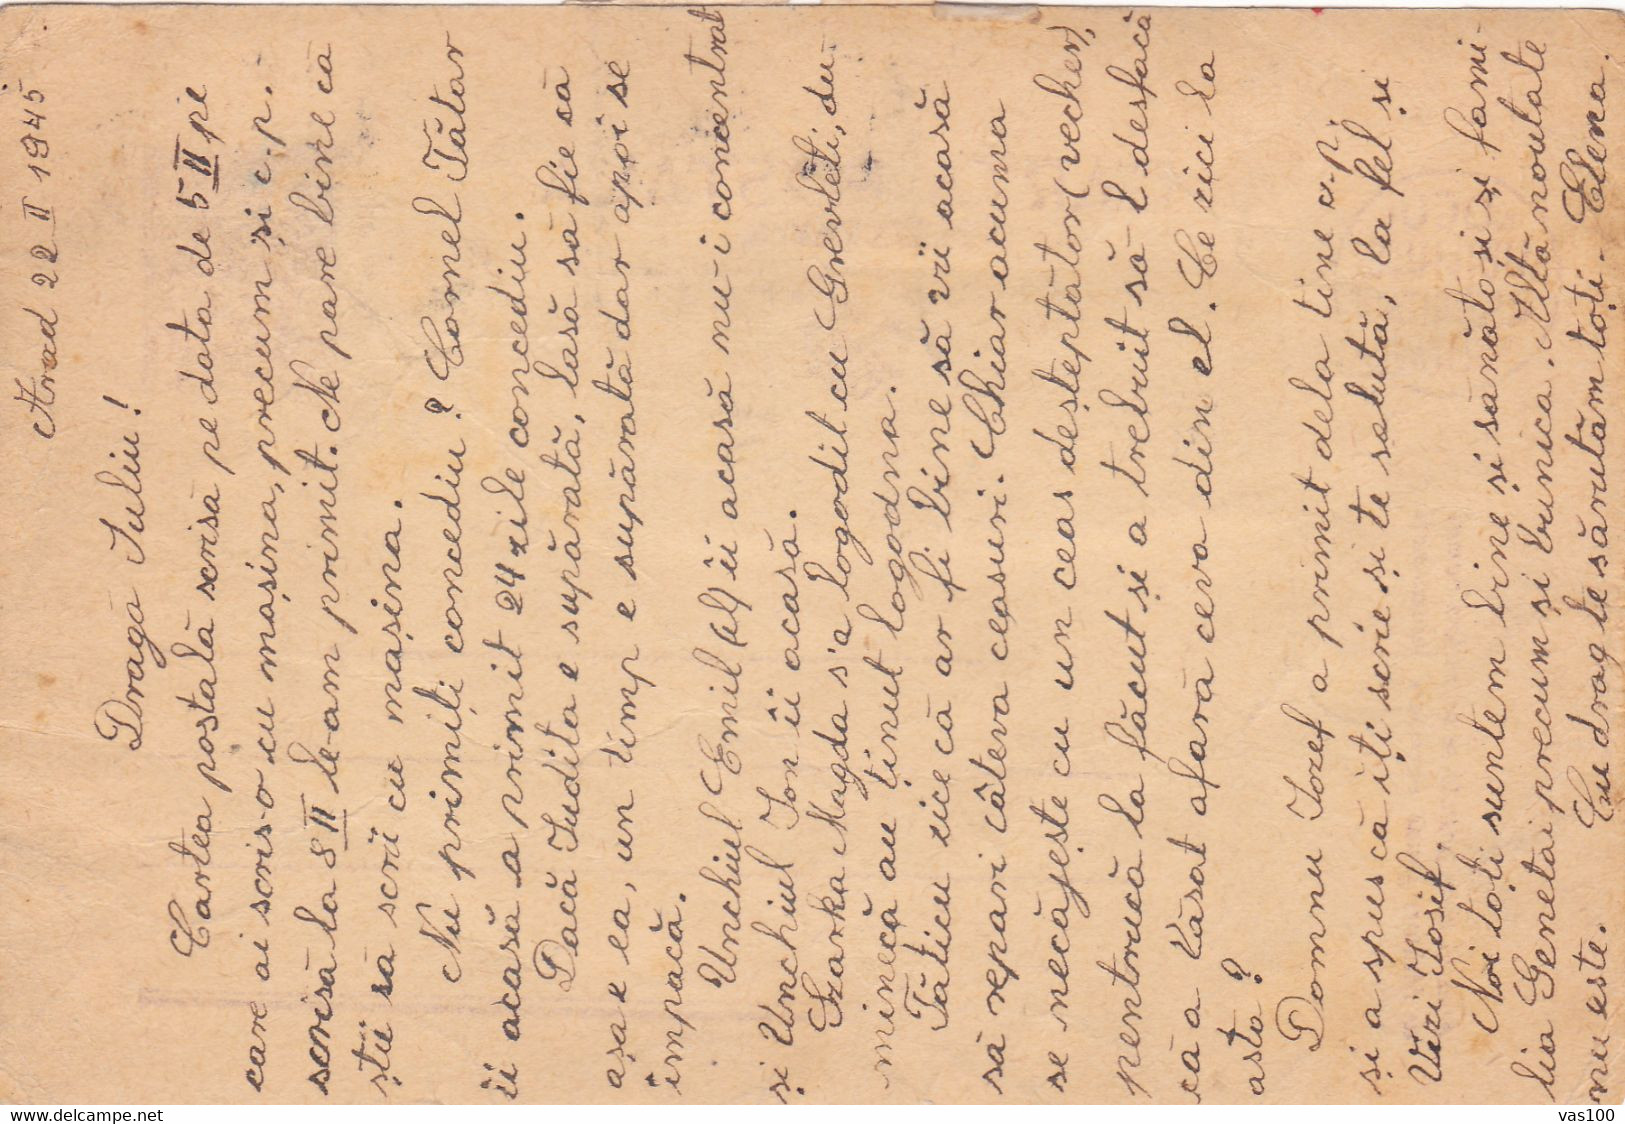 Arad 22 II 1945
Dragă Iuliu!
Cartea poștală scrisă pe data de 5 II pe
care ai scris-o cu mașina, precum și c.p.
scrisă la 8 II le-am primit. Ne pare bine că
știi să scrii cu mașina.
Nu primiți concediu? Cornel Tătar
îi acasă a primit 24 zile concediu.
Dacă Iudita e supărată, lasă să fie că
așa e ea, un timp e supărată dar apoi se
împacă.
Unchiul Emil îi acasă nu-i concentrat
și Unchiul Ion îi acasă.
Szarka Magda s'a logodit cu Grevleti, du-
minecă au ținut logodna.
Tăticu zice că ar fi bine să vii acasă
să repari câteva ceasuri. Chiar acuma
se necăjește cu un ceas deșteptător (vecher),
pentrucă la făcut și a trebuit să-l desfacă
că a lăsat afară ceva din el. Ce zici la
asta?
Domnu Iozef a primit dela tine c.p.
și a spus că iți scrie și te salută, la fel și
Vizi Iosif.
Noi toți suntem bine și sănătoși și fami-
lia Genetai precum și bunica. Altă noutate
nu este. Cu drag te sărutăm toți - Elena.
delcampe.net
vas100